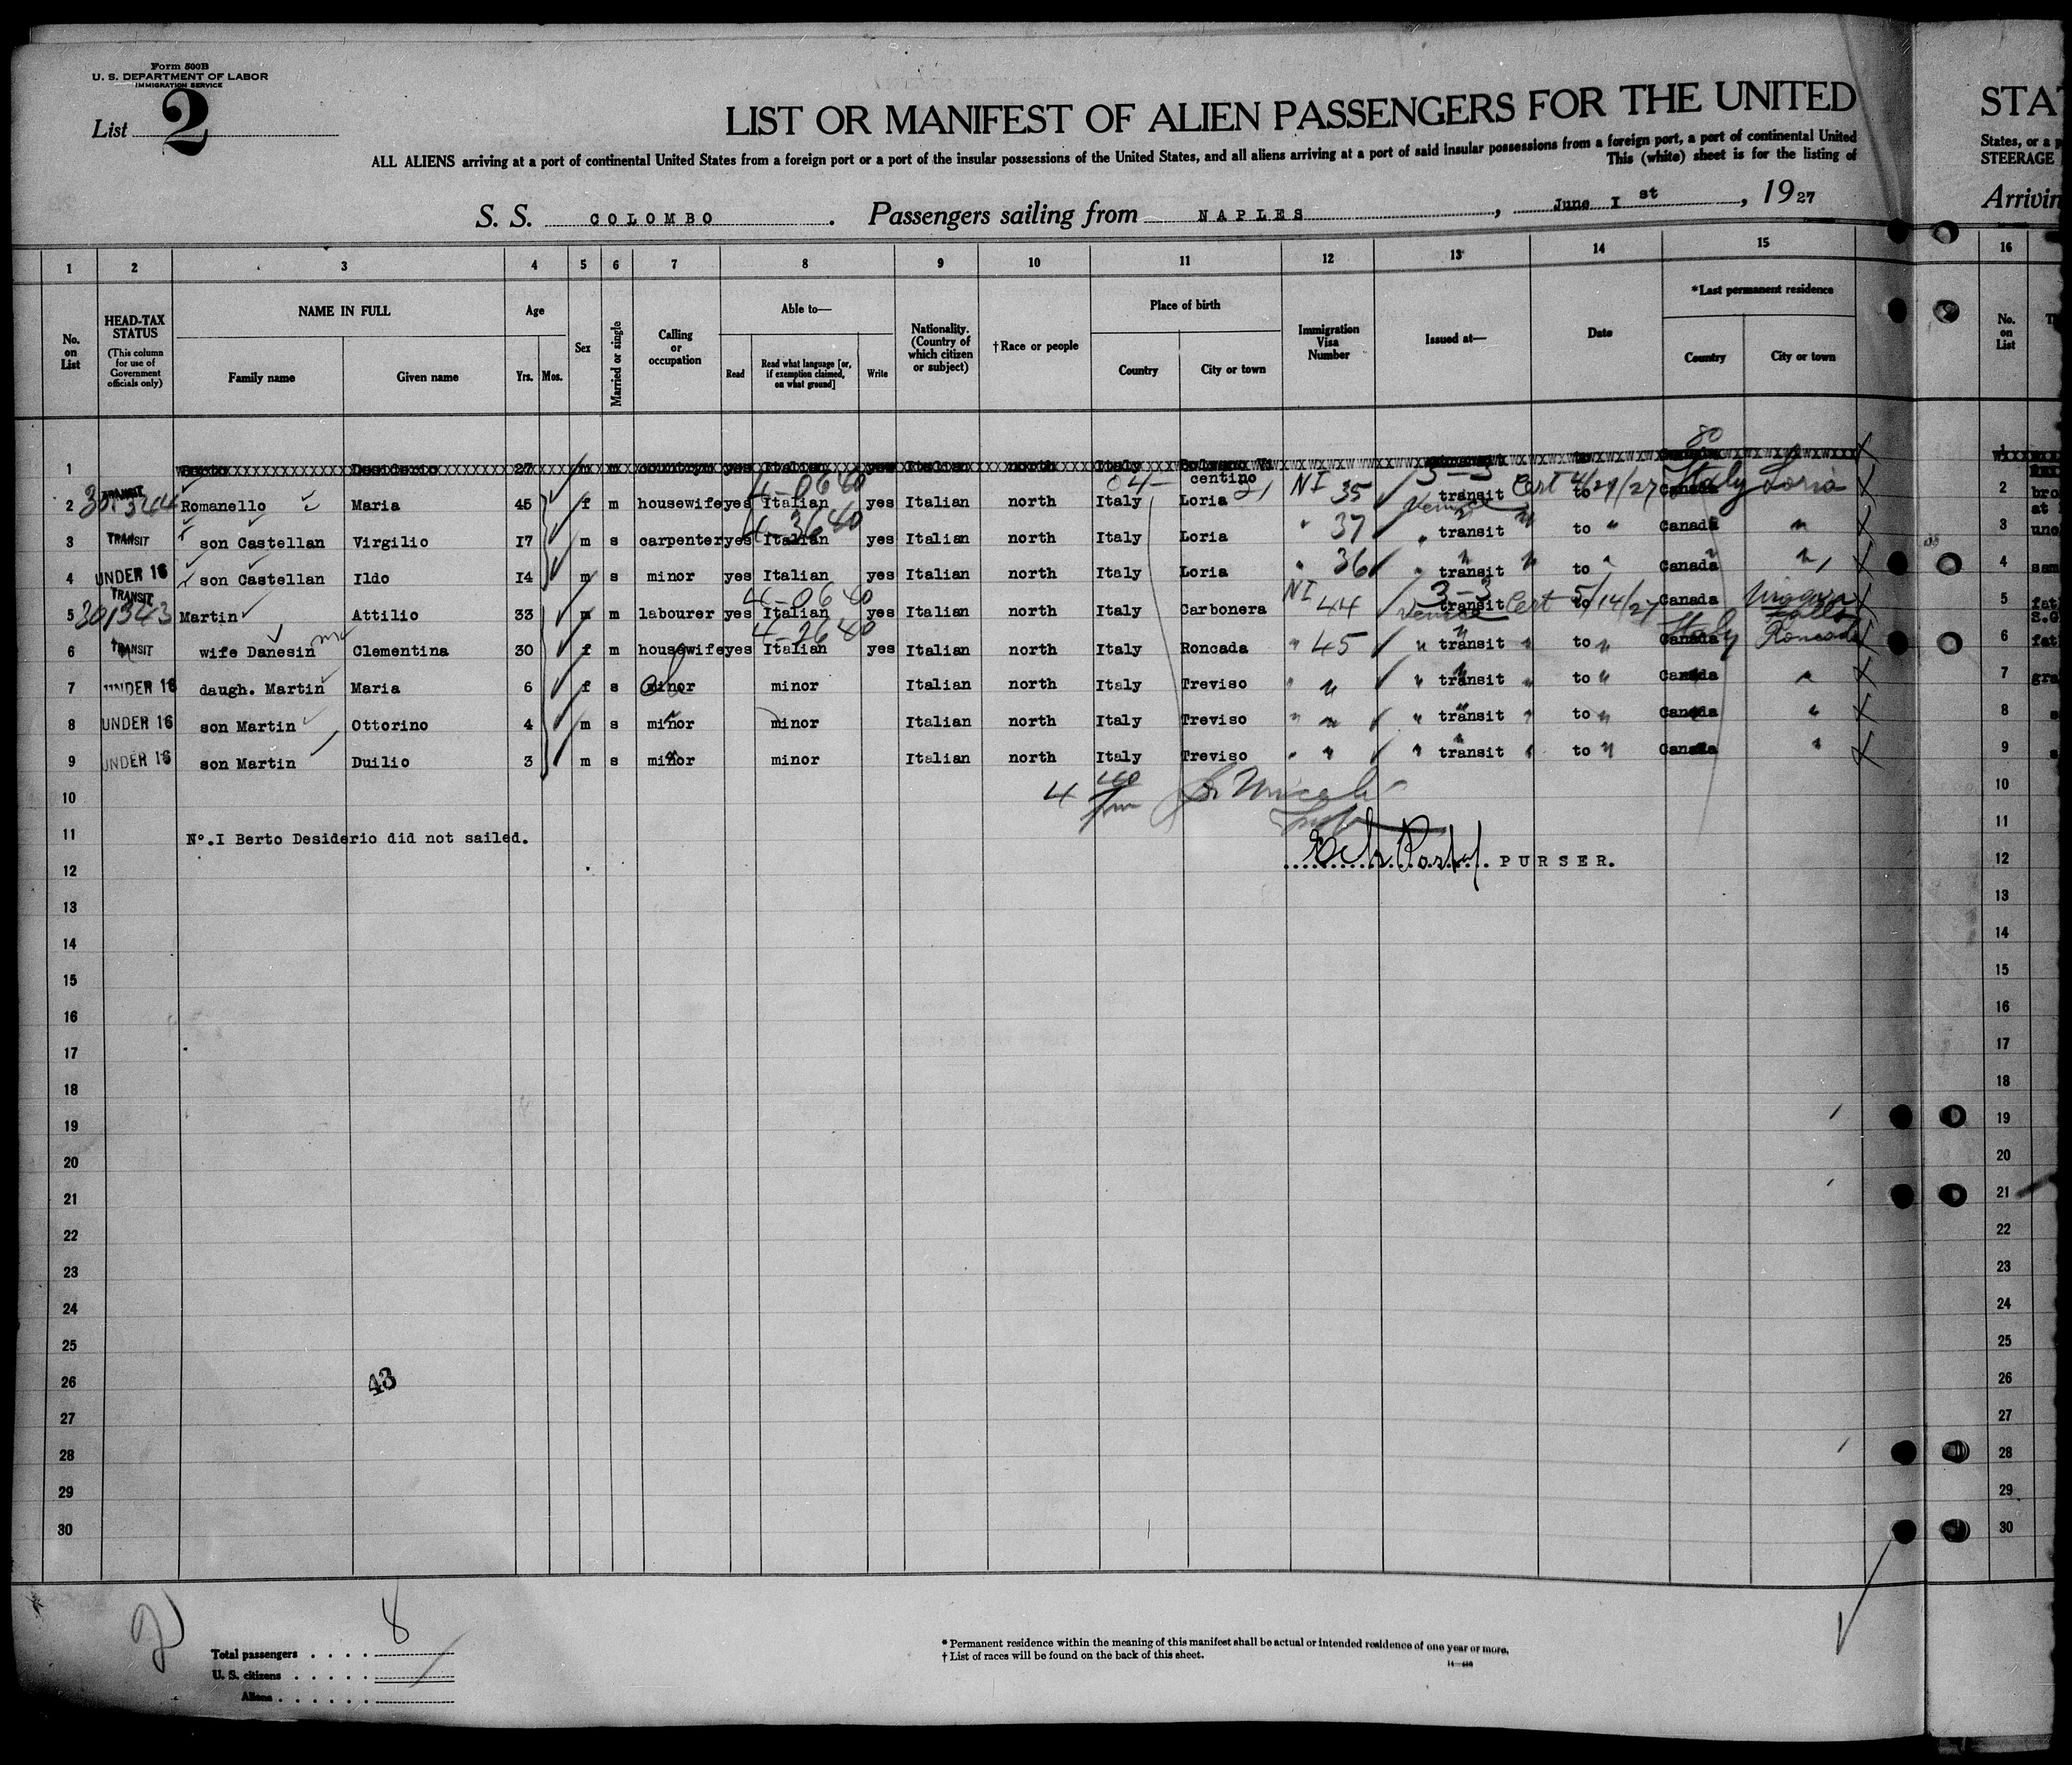 Form 500B
U. S. DEPARTMENT OF LABOR
IMMIGRATION SERVICE
List 2
LIST OR MANIFEST OF ALIEN PASSENGERS FOR THE UNITED
STA
ALL ALIENS arriving at a port of continental United States from a foreign port or a port of the insular possessions of the United States, and all aliens arriving at a port of said insular possessions from a foreign port, a port of continental United
States, or a p
This (white) sheet is for the listing of
STEERAGE
S. S. COLOMBO . Passengers sailing from NAPLES , June I st , 1927
Arrivin
1 2 3 4 5 6 7 8 9 10 11 12 13 14 15 16
No. on List
HEAD-TAX STATUS
(This column for use of Government officials only)
NAME IN FULL
Family name
Given name
Age
Yrs.
Mos.
Sex
Married or single
Calling or occupation
Able to—
Read
Read what language [or, if exemption claimed, on what ground]
Write
Nationality. (Country of which citizen or subject)
†Race or people
Place of birth
Country
City or town
Immigration Visa Number
Issued at—
Date
*Last permanent residence
Country
City or town
No. on List
80
1 Berto Desiderio 27 m m countrym yes Italian yes Italian north Italy centino 1
2 TRANSIT 301344 Romanello Maria 45 f m housewife yes Italian yes Italian north Italy Loria NI 35 transit Venice Cert to 4/27/27 Canada Italy Loria 2 bro
at
3 TRANSIT son Castellan Virgilio 17 m s carpenter yes Italian yes Italian north Italy Loria " 37 transit to " Canada " 3 unc
4 UNDER 16 son Castellan Ildo 14 m s minor yes Italian yes Italian north Italy Loria " 36 transit to " Canada " 4 sam
5 TRANSIT 301343 Martin Attilio 33 m m labourer yes Italian yes Italian north Italy Carbonera NI 44 3-3 transit Venice Cert to 5/14/27 Canada 5 fat
S.G
6 TRANSIT wife Danesin Clementina 30 f m housewife yes Italian yes Italian north Italy Roncada " 45 " transit " to " Canada Italy Roncada 6 fat
7 UNDER 16 daugh. Martin Maria 6 f s minor minor Italian north Italy Treviso " " " transit " to " Canada " 7 gra
8 UNDER 16 son Martin Ottorino 4 m s minor minor Italian north Italy Treviso " " " transit " to " Canada " 8 s
9 UNDER 16 son Martin Duilio 3 m s minor minor Italian north Italy Treviso " " " transit " to " Canada " 9 s
10 4 10
11 N°.I Berto Desiderio did not sailed. 11
12 PURSER. 12
13 13
14 14
15 15
16 16
17 17
18 18
19 19
20 20
21 21
22 22
23 23
24 24
25 25
26 43 26
27 27
28 28
29 29
30 30
2
Total passengers . . . . 8
U. S. citizens . . . . .
Aliens . . . . . .
* Permanent residence within the meaning of this manifest shall be actual or intended residence of one year or more.
† List of races will be found on the back of this sheet.